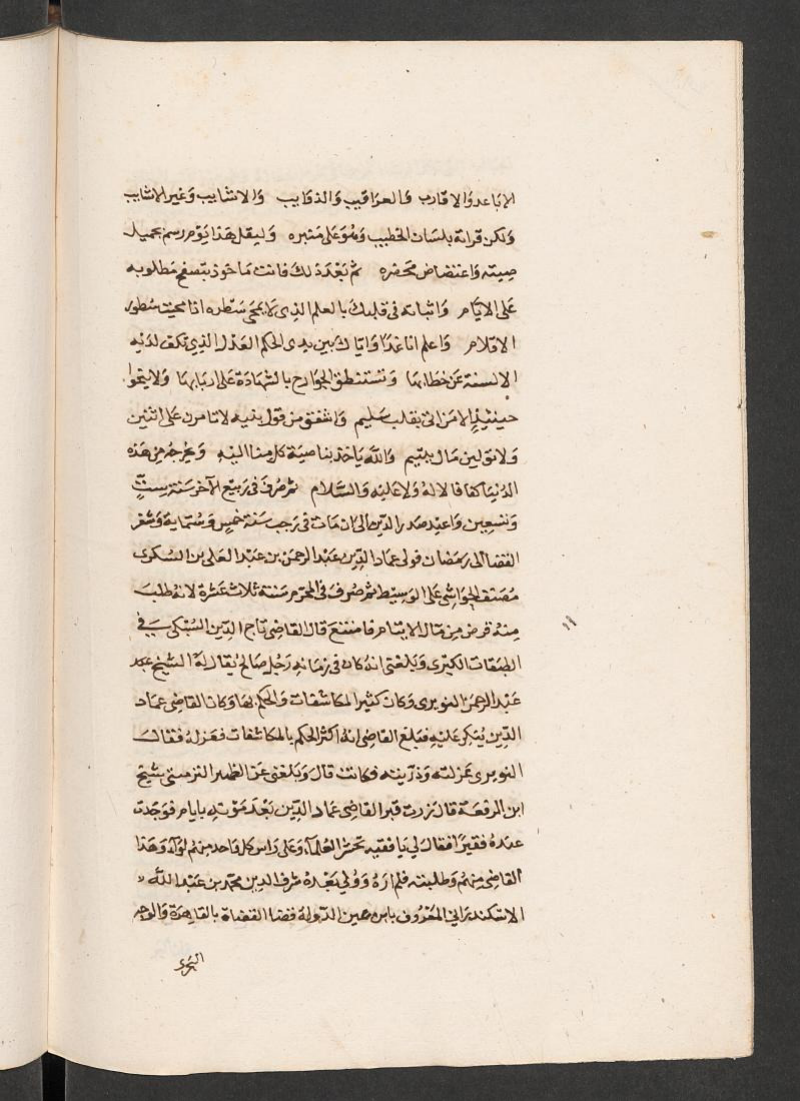 الاباعد والاقارب والعراقيب والذوايب والاشايب وغير الاشايب
ولكن قراته بلسان الخطيب وهو على منبره وليقل هذا يوم رسم بجميل
صيته واعتضاض محضره ثم بعد ذلك فانت ماخوذ بتصفح مطلوبه
على الايام واثباته في قلبك بالعلم الذى لا يمحى سطره اذا محيت سطور
الاقلام واعلم انا غدا واياك بين يدى الحكم العدل الذي تكف لديه
الالسنة عن خطابها وتستنطق الجوارح بالشهادة على اربابها ولا ينجوا
حينيذ الا من اتى بقلب سليم واشفق من قول نبيه لا تامرن على اثنين
ولا تولين مال يتيم والله ياخذ بناصية كل منا اليه ويخرجه من هذه
الدنيا كفافا لا له ولا عليه والسلام ثم صرف في ربيع الاخر سنة ست
وتسعين واعيد صدر الدين الى ان مات في رجب سنة خمس وستماية وشغر
القضا الى رمضان فولى عماد الدين عبد الرحمن بن عبد العالى بن السكرى
مصنف الحواشى على الوسيط ثم صرف فى المحرم سنة ثلاث عشرة لانه طلب
منه قرض من مال الايتام فامتنع قال القاضى تاج الدين السبكى في
الطبقات الكبرى وبلغنى انه كان فى زمانه رجل صالح يقال له الشيخ عبد
عبد الرحمن النويرى وكان كثير المكاشفات والحكم بها وكان القاضى عماد
الدين ينكر عليه فبلغ القاضى انه اكثر الحكم بالمكاشفات فعزله فقال
النويرى عزلته وذريته فكانت قال وبلغنى عن الظهير التزمنتى شيخ
ابن الرفعة قال زرت قبر القاضى عماد الدين بعد موته بايام فوجدت
عنده فقيرا فقال لي يا فقيه تحشر العلماء وعلى راس كل واحد منهم لواء وهذا
القاضى منهم وطلبته فلم اره وولي بعده شرف الدين محمد بن عبد الله
الاسكندرانى المعروف بابن عين الدولة قضا القضاة بالقاهرة والوجه
البحرى